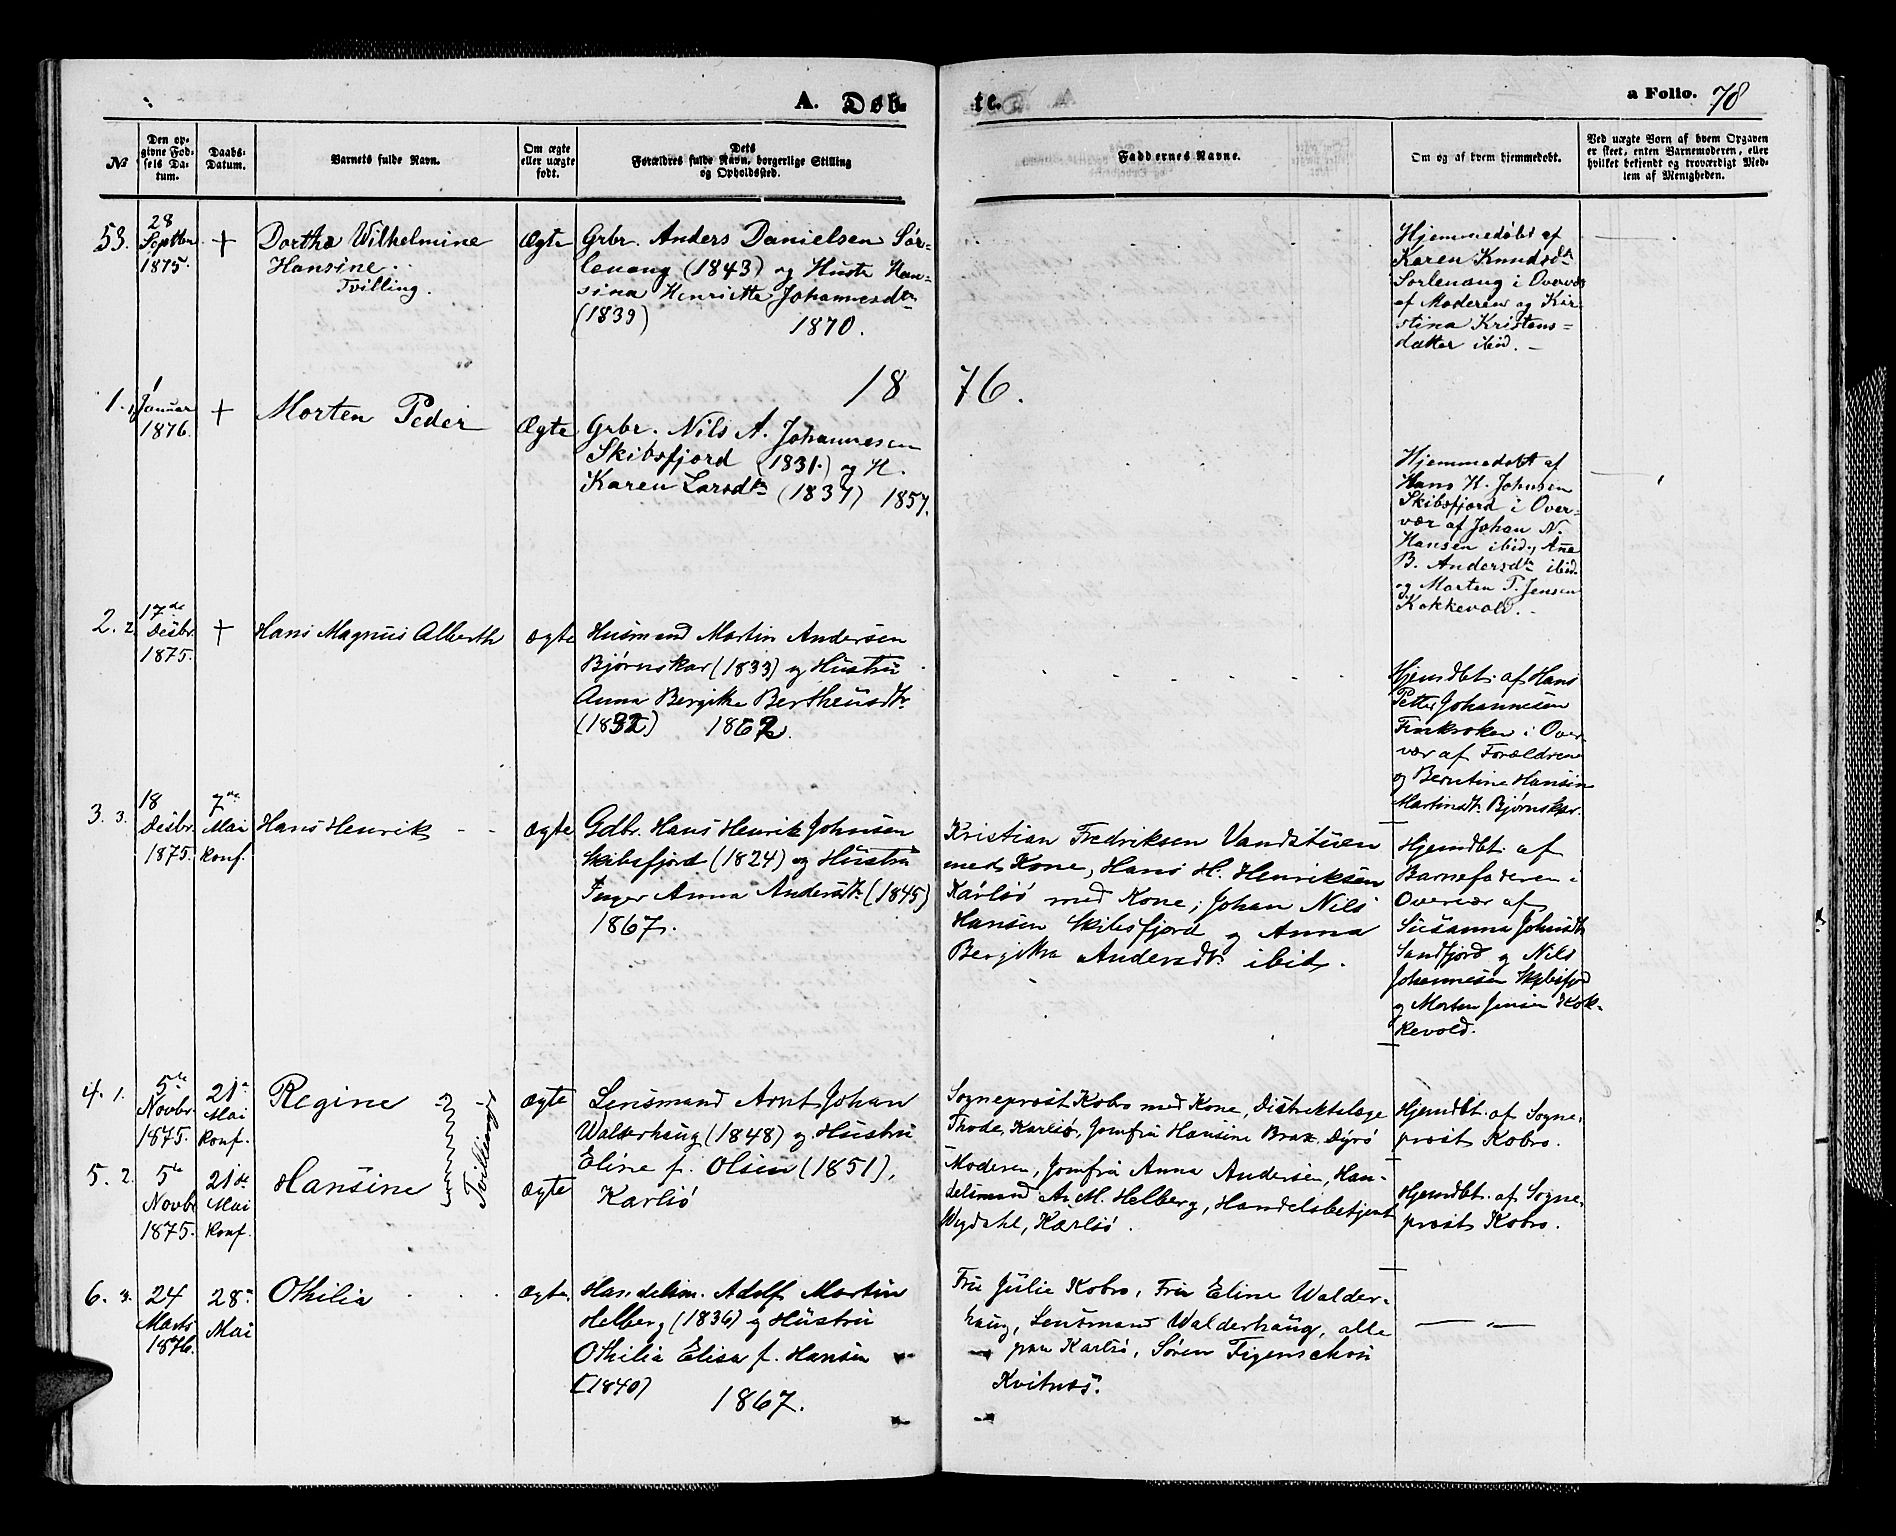 A. Døb-
te.
a Folio. 78
№
Den op-
givne Fød-
sels Da-
tum.
Daabs-
Datum.
Barnets fulde Navn.
Om ægte
eller uægte
født.
Dets
Forældres fulde Navn, borgerlige Stilling
og Opholdssted.
Faddernes Navne.
Om og af hvem hjemmedøbt.
Ved uægte Børn af hvem Opgaven
er skeet, enten Barnemoderen, eller
hvilket bekjendt og troværdigt Med-
lem af Menigheden.
53.
28
Septbr.
1875.
+
Dorthe Wilhelmine
Hansine.
Tvilling.
Ægte
Grbr. Anders Danielsen Sør-
lenang (1843) og Hustr Han-
sina Henriette Johannesdtr
(1839) 1870.
Hjemmedøbt af
Karen Knudsdtr
Sørlenang i Overvær
af Moderen og Kir-
stina Kristens=
datter ibid. –
18 76.
1. 1.
1
Januar
1876.
+
Morten Peder
Ægte
Grbr. Nils A. Johannesen
Skibsfjord (1831.) og H.
Karen Larsdtr (1837) 1857.
Hjemmedøbt af
Hans H. Johnsen
Skibsfjord i Over-
vær af Johan N.
Hansen ibid, Ana
B. Andersdtr ibid
og Morten P. Jensen
Kokkevold. –
2. 2.
17de
Desbr.
1875.
+
Hans Magnus Alberth
ægte
Husmand Martin Andersen
Bjørnskar (1833) og Hustru
Anna Bergitha Bertheusdtr.
(1832) 1862.
Hjemdbt. af Hans
Petter Johannesen
Finkroken i Over-
vær af Forældrene
og Berntine Hansine
Martinsdt. Bjørnskar.
3. 3.
18
Desbr.
1875.
7de
Mai
konf.
Hans Henrik - -
ægte
Gdbr. Hans Henrik Johnsen
Skibsfjord (1824) og Hustru
Inger Anna Andersdtr. (1845)
1867.
Kristian Fredriksen Vandstuen
med Kone, Hans H. Henriksen
Karlsö med Kone, Johan Nils
Hansen Skibsfjord og Anna
Bergitha Andersdt. ibid.
Hjemdbt. af
Barnefaderen i
Overvær af
Susanna Johnsdt.
Sandfjord og Nils
Johannesen Skibsfjord
og Morten Jensen Kok-
kevold.
4. 1.
5te
Novbr
1875.
21de
Mai
konf.
Regine
Tvillinger
ægte
Lensmand Arnt Johan
Walderhaug (1848) og Hustru
Eline f. Olsen (1851),
Karlsö
Sogneprest Kobro med Kone, Distriktslæge
Thode, Karlsö, Jomfru Hansine Brox, Dyrö
Hjemdbt. af Sogne-
prest Kobro.
5. 2.
5te
Novbr
1875.
21de
Mai
konf.
Hansine
ægte
Moderen, Jomfru Anna Andersen, Han-
delsmand A. M. Helberg, Handelsbetjent
Wydahl, Karlsö.
Hjemdbt. af Sogne-
prest Kobro.
6. 3.
24
Marts
1876.
28de
Mai
Othilia
ægte.
Handelsm. Adolf Martin
Helberg (1836) og Hustru
Othilia Elisa f. Hansen
(1840) 1867.
Fru Julie Kobro, Fru Eline Walder-
haug, Lensmand Walderhaug, alle
paa Karlsö, Søren Figenschou
Kvitnæs.